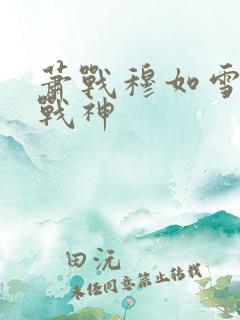 蕭戰穆如雪
戰神
田沅
未經同意禁止轉載